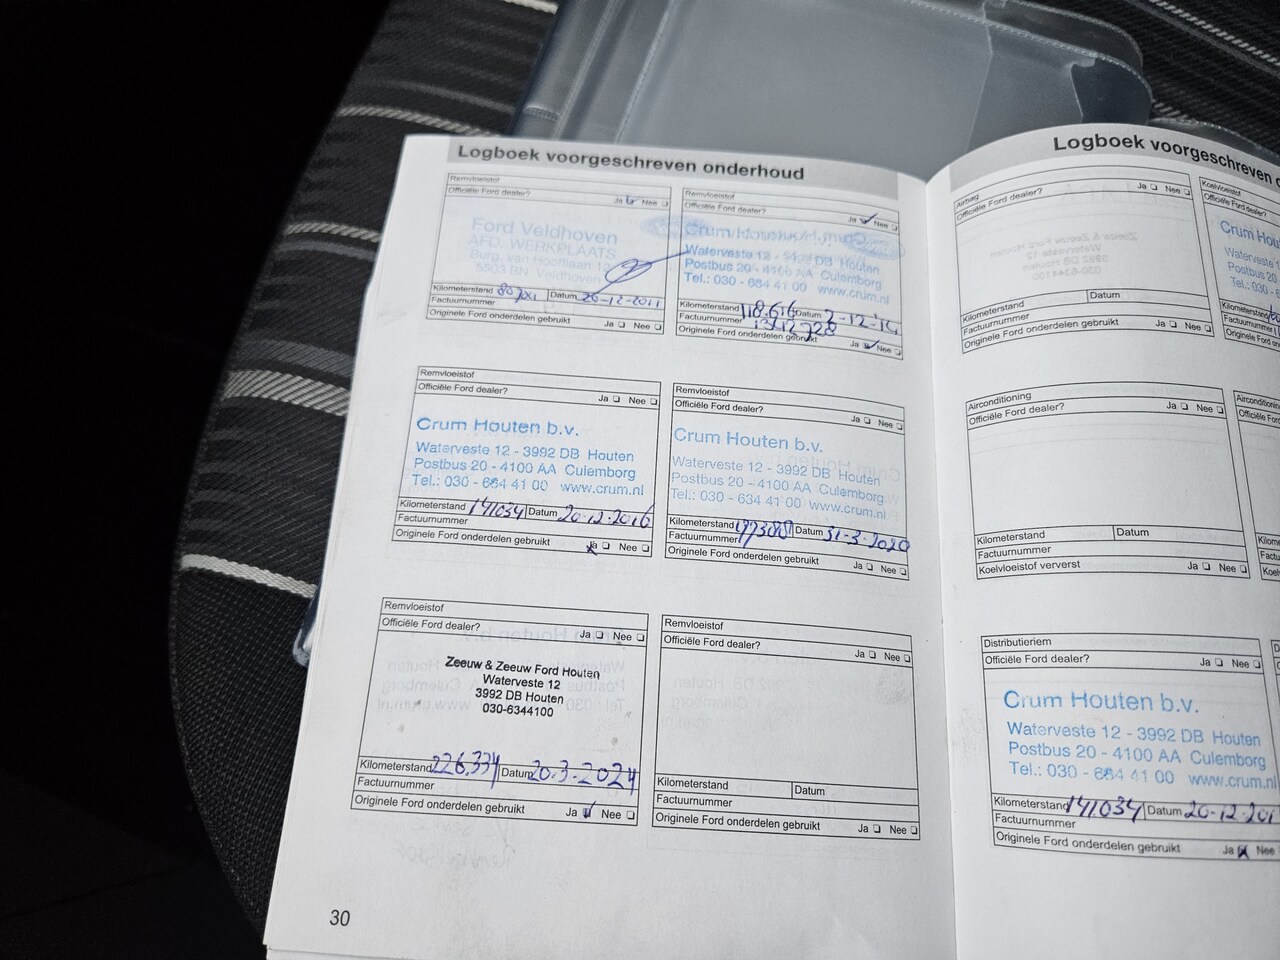 Logboek voorgeschreven onderhoud
Remvloeistof
Officiële Ford dealer? Ja Nee
Ford Veldhoven
AFD. WERKPLAATS
Burg. van Hooflaan
5503 BN Veldhoven
Kilometerstand Datum 20-12-2011
Factuurnummer
Originele Ford onderdelen gebruikt Ja Nee
Remvloeistof
Officiële Ford dealer? Ja Nee
Crum Houten b.v.
Waterveste 12 - 3992 DB Houten
Postbus 20 - 4100 AA Culemborg
Tel.: 030 - 634 41 00 www.crum.nl
Kilometerstand 118.616 Datum 2-12-'14
Factuurnummer
Originele Ford onderdelen gebruikt Ja Nee
Remvloeistof
Officiële Ford dealer? Ja Nee
Crum Houten b.v.
Waterveste 12 - 3992 DB Houten
Postbus 20 - 4100 AA Culemborg
Tel.: 030 - 634 41 00 www.crum.nl
Kilometerstand 141034 Datum 20-12-2016
Factuurnummer
Originele Ford onderdelen gebruikt Ja Nee
Remvloeistof
Officiële Ford dealer? Ja Nee
Crum Houten b.v.
Waterveste 12 - 3992 DB Houten
Postbus 20 - 4100 AA Culemborg
Tel.: 030 - 634 41 00 www.crum.nl
Kilometerstand Datum 31-3-2020
Factuurnummer
Originele Ford onderdelen gebruikt Ja Nee
Remvloeistof
Officiële Ford dealer? Ja Nee
Zeeuw & Zeeuw Ford Houten
Waterveste 12
3992 DB Houten
030-6344100
Kilometerstand 226.334 Datum 20.3.2024
Factuurnummer
Originele Ford onderdelen gebruikt Ja Nee
Remvloeistof
Officiële Ford dealer? Ja Nee
Kilometerstand Datum
Factuurnummer
Originele Ford onderdelen gebruikt Ja Nee
30
Logboek voorgeschreven
Airbag
Officiële Ford dealer? Ja Nee
Kilometerstand Datum
Factuurnummer
Originele Ford onderdelen gebruikt Ja Nee
Koelvloeistof
Officiële Ford
Crum
Waterveste
Postbus 2
Tel.: 030
Kilometerstand
Factuurnummer
Originele Ford
Airconditioning
Officiële Ford dealer? Ja Nee
Kilometerstand Datum
Factuurnummer
Koelvloeistof ververst Ja Nee
Airconditioning
Officiële Ford
Distributieriem
Officiële Ford dealer? Ja Nee
Crum Houten b.v.
Waterveste 12 - 3992 DB Houten
Postbus 20 - 4100 AA Culemborg
Tel.: 030 - 634 41 00 www.crum.nl
Kilometerstand 141034 Datum 20-12-201
Factuurnummer
Originele Ford onderdelen gebruikt Ja Nee